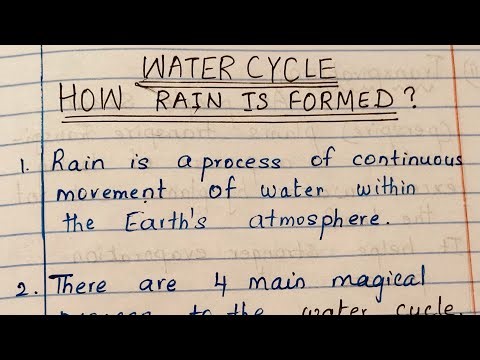 WATER CYCLE
HOW RAIN IS FORMED?
1. Rain is a process of continuous
movement of water within
the Earth's atmosphere.
2. There are 4 main magical
to the water cycle.